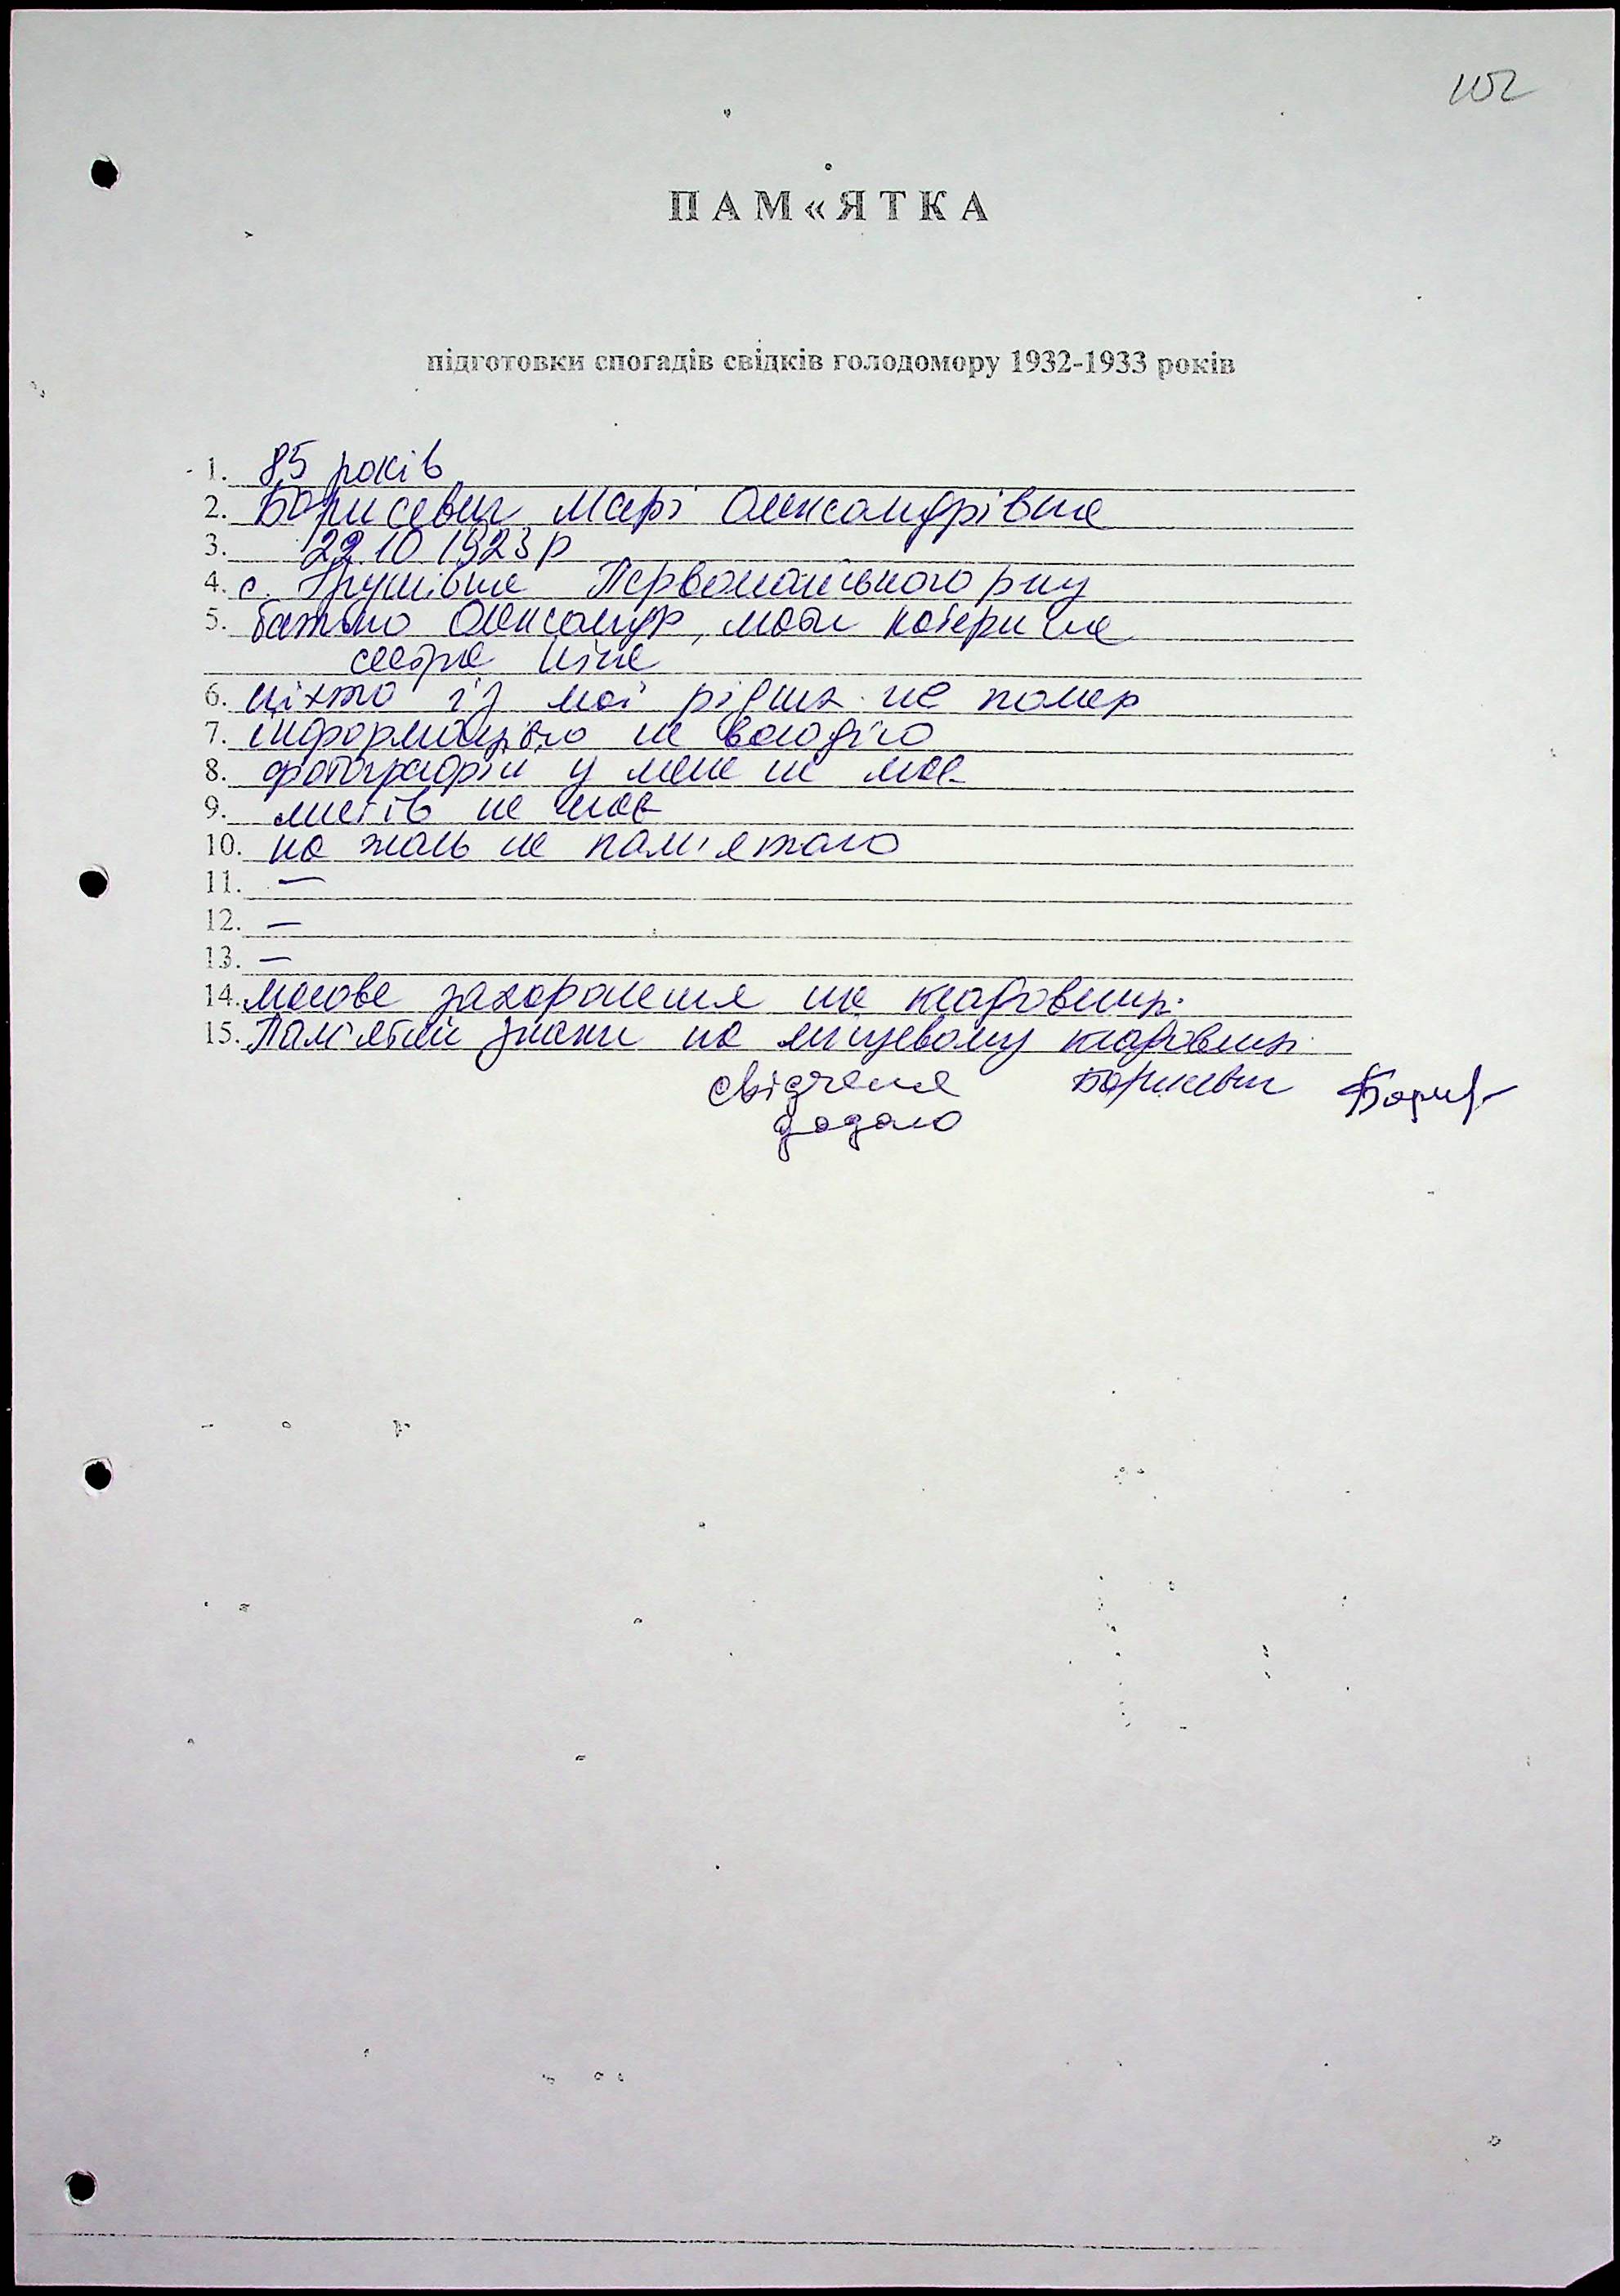 102
ПАМ«ЯТКА
підготовки спогадів свідків голодомору 1932-1933 років
1. 85 років
2. Борисевич Марі Олександрівна
3. 22.10.1923 р
4. с. Грушівка Первомайського р-ну
5. батько Олександр, мати Катерина
сестра Ніна
6. ніхто із моі рідних не помер
7. інформацією не володію
8. фотографій у мене не має
9. листів не має
10. на жаль не пам'ятаю
11. –
12. –
13. –
14. масове захоронення на кладовищі.
15. Пам'ятні знаки на місцевому кладовищі.
свідчення Борисевич
додаю